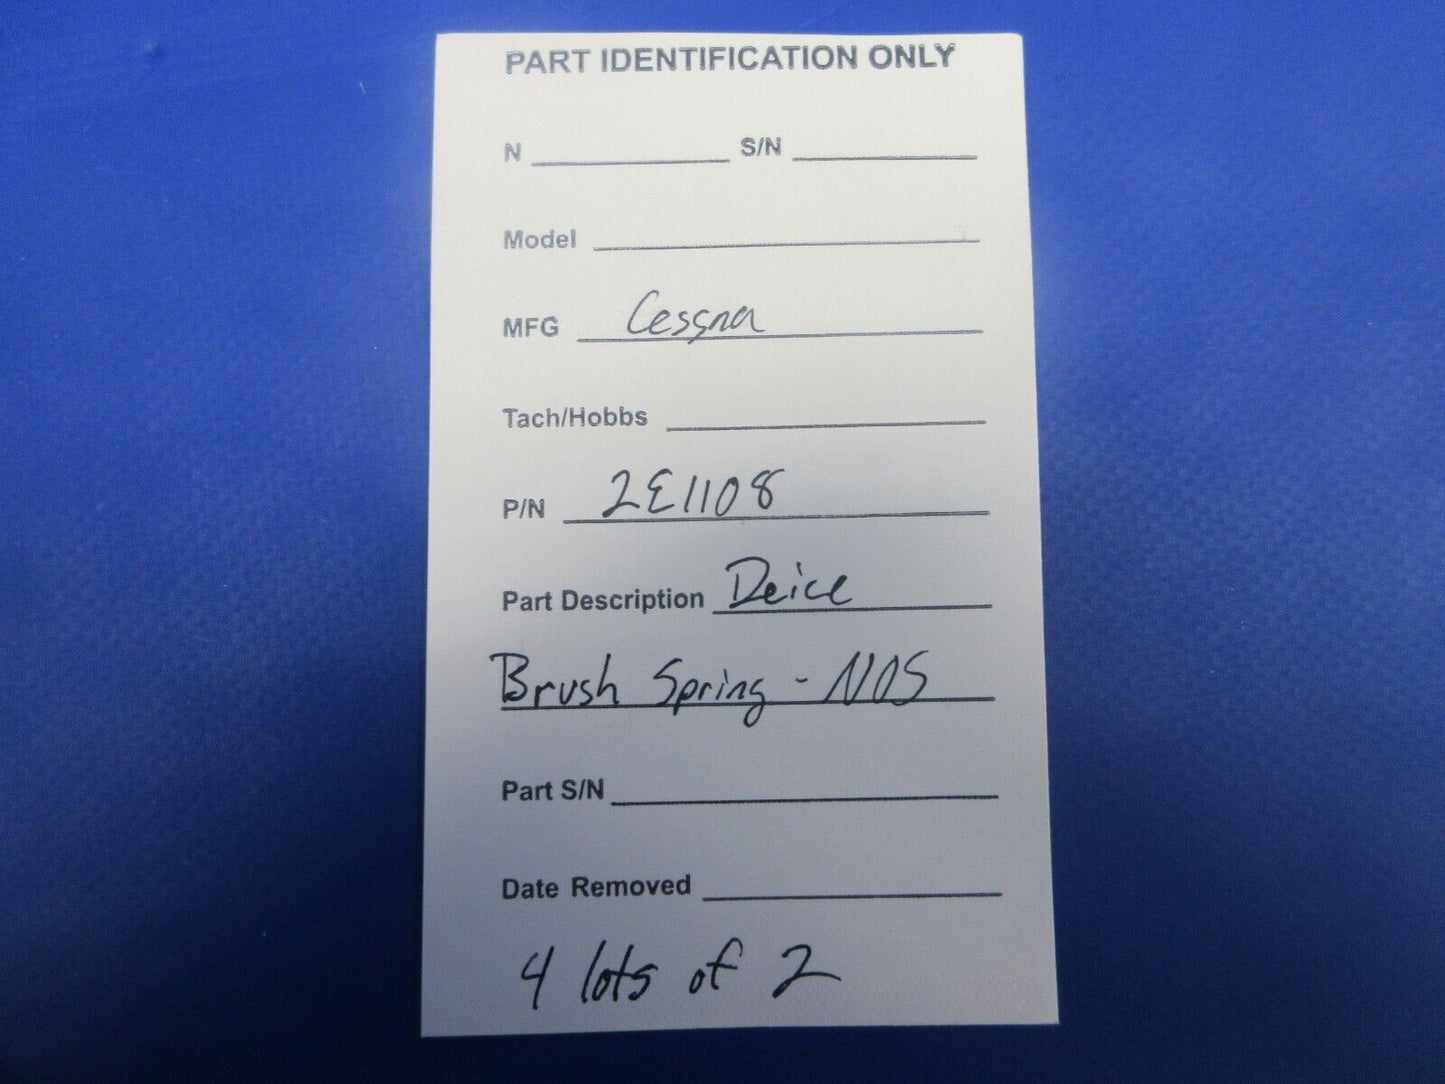 PART IDENTIFICATION ONLY
N S/N
Model
MFG Cessna
Tach/Hobbs
P/N 2E1108
Part Description Deice
Brush Spring - NOS
Part S/N
Date Removed
4 lots of 2